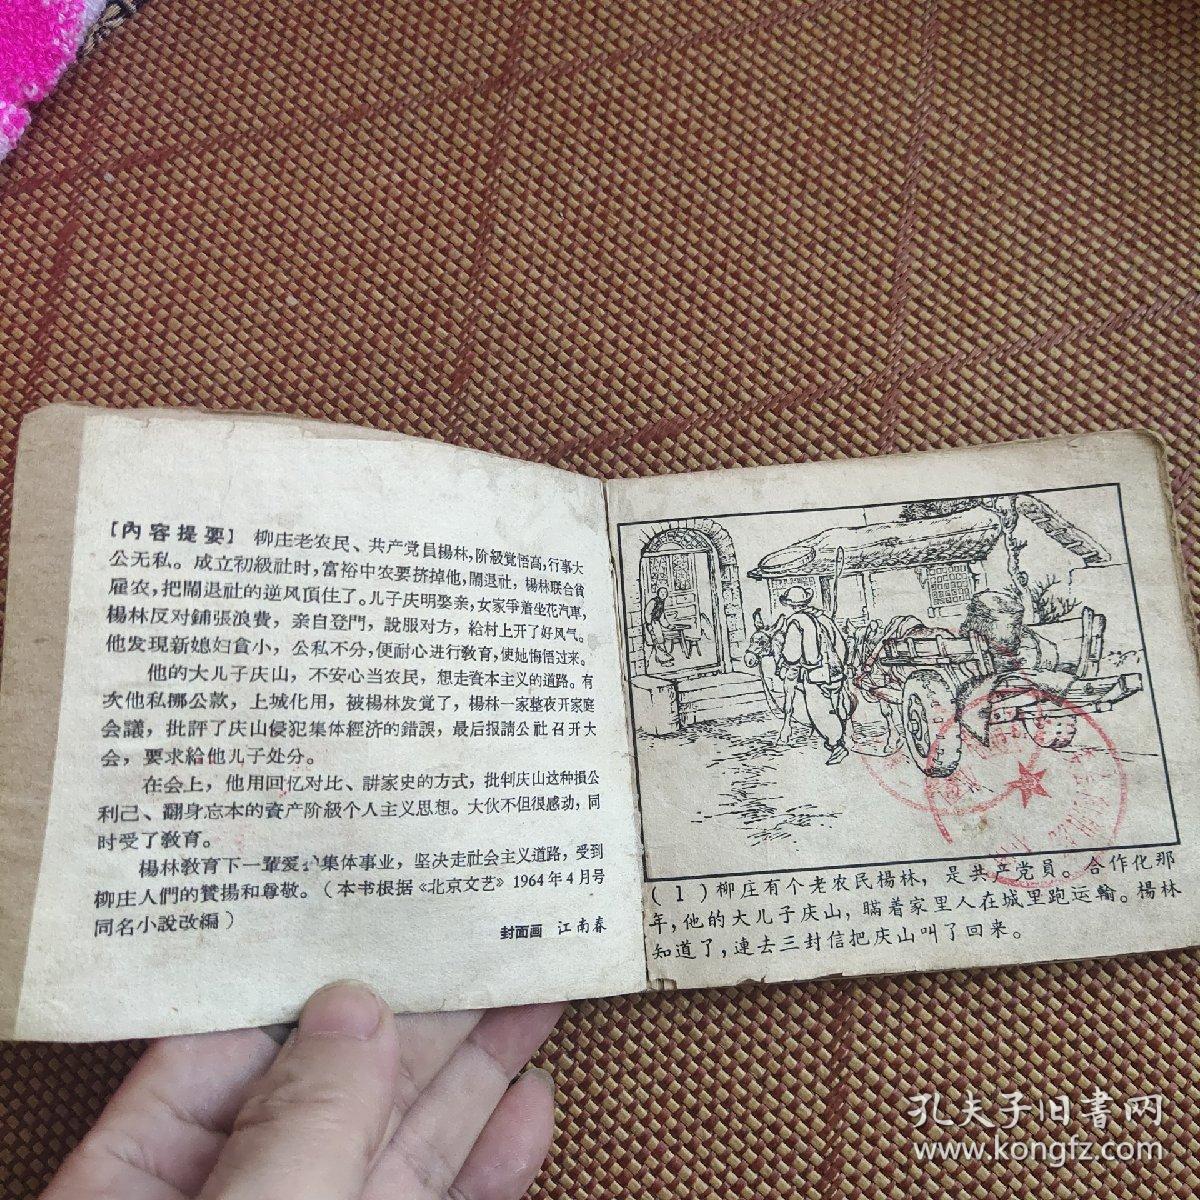 【內容提要】 柳庄老农民、共产党員楊林，阶級覚悟高，行事大
公无私。成立初級社时，富裕中农要挤掉他，鬧退社，楊林联合貧
雇农，把鬧退社的逆风頂住了。儿子庆明娶亲，女家爭着坐花汽車，
楊林反对鋪張浪費，亲自登門，說服对方，給村上开了好风气。
他发現新媳妇貪小，公私不分，便耐心进行敎育，使她悔悟过来。
他的大儿子庆山，不安心当农民，想走資本主义的道路。有
次他私挪公款，上城化用，被楊林发覚了，楊林一家整夜开家庭
会議，批評了庆山侵犯集体經济的錯誤，最后报請公社召开大
会，要求給他儿子处分。
在会上，他用回忆对比、講家史的方式，批判庆山这种損公
利己、翻身忘本的資产阶級个人主义思想。大伙不但很感动，同
时受了敎育。
楊林敎育下一輩爱护集体事业，坚决走社会主义道路，受到
柳庄人們的贊揚和尊敬。（本书根据《北京文艺》1964年4月号
同名小說改編）
封面画 江南春
（1）柳庄有个老农民楊林，是共产党員。合作化那
年，他的大儿子庆山，瞞着家里人在城里跑运輸。楊林
知道了，連去三封信把庆山叫了回来。
孔夫子旧書网
www.kongfz.com